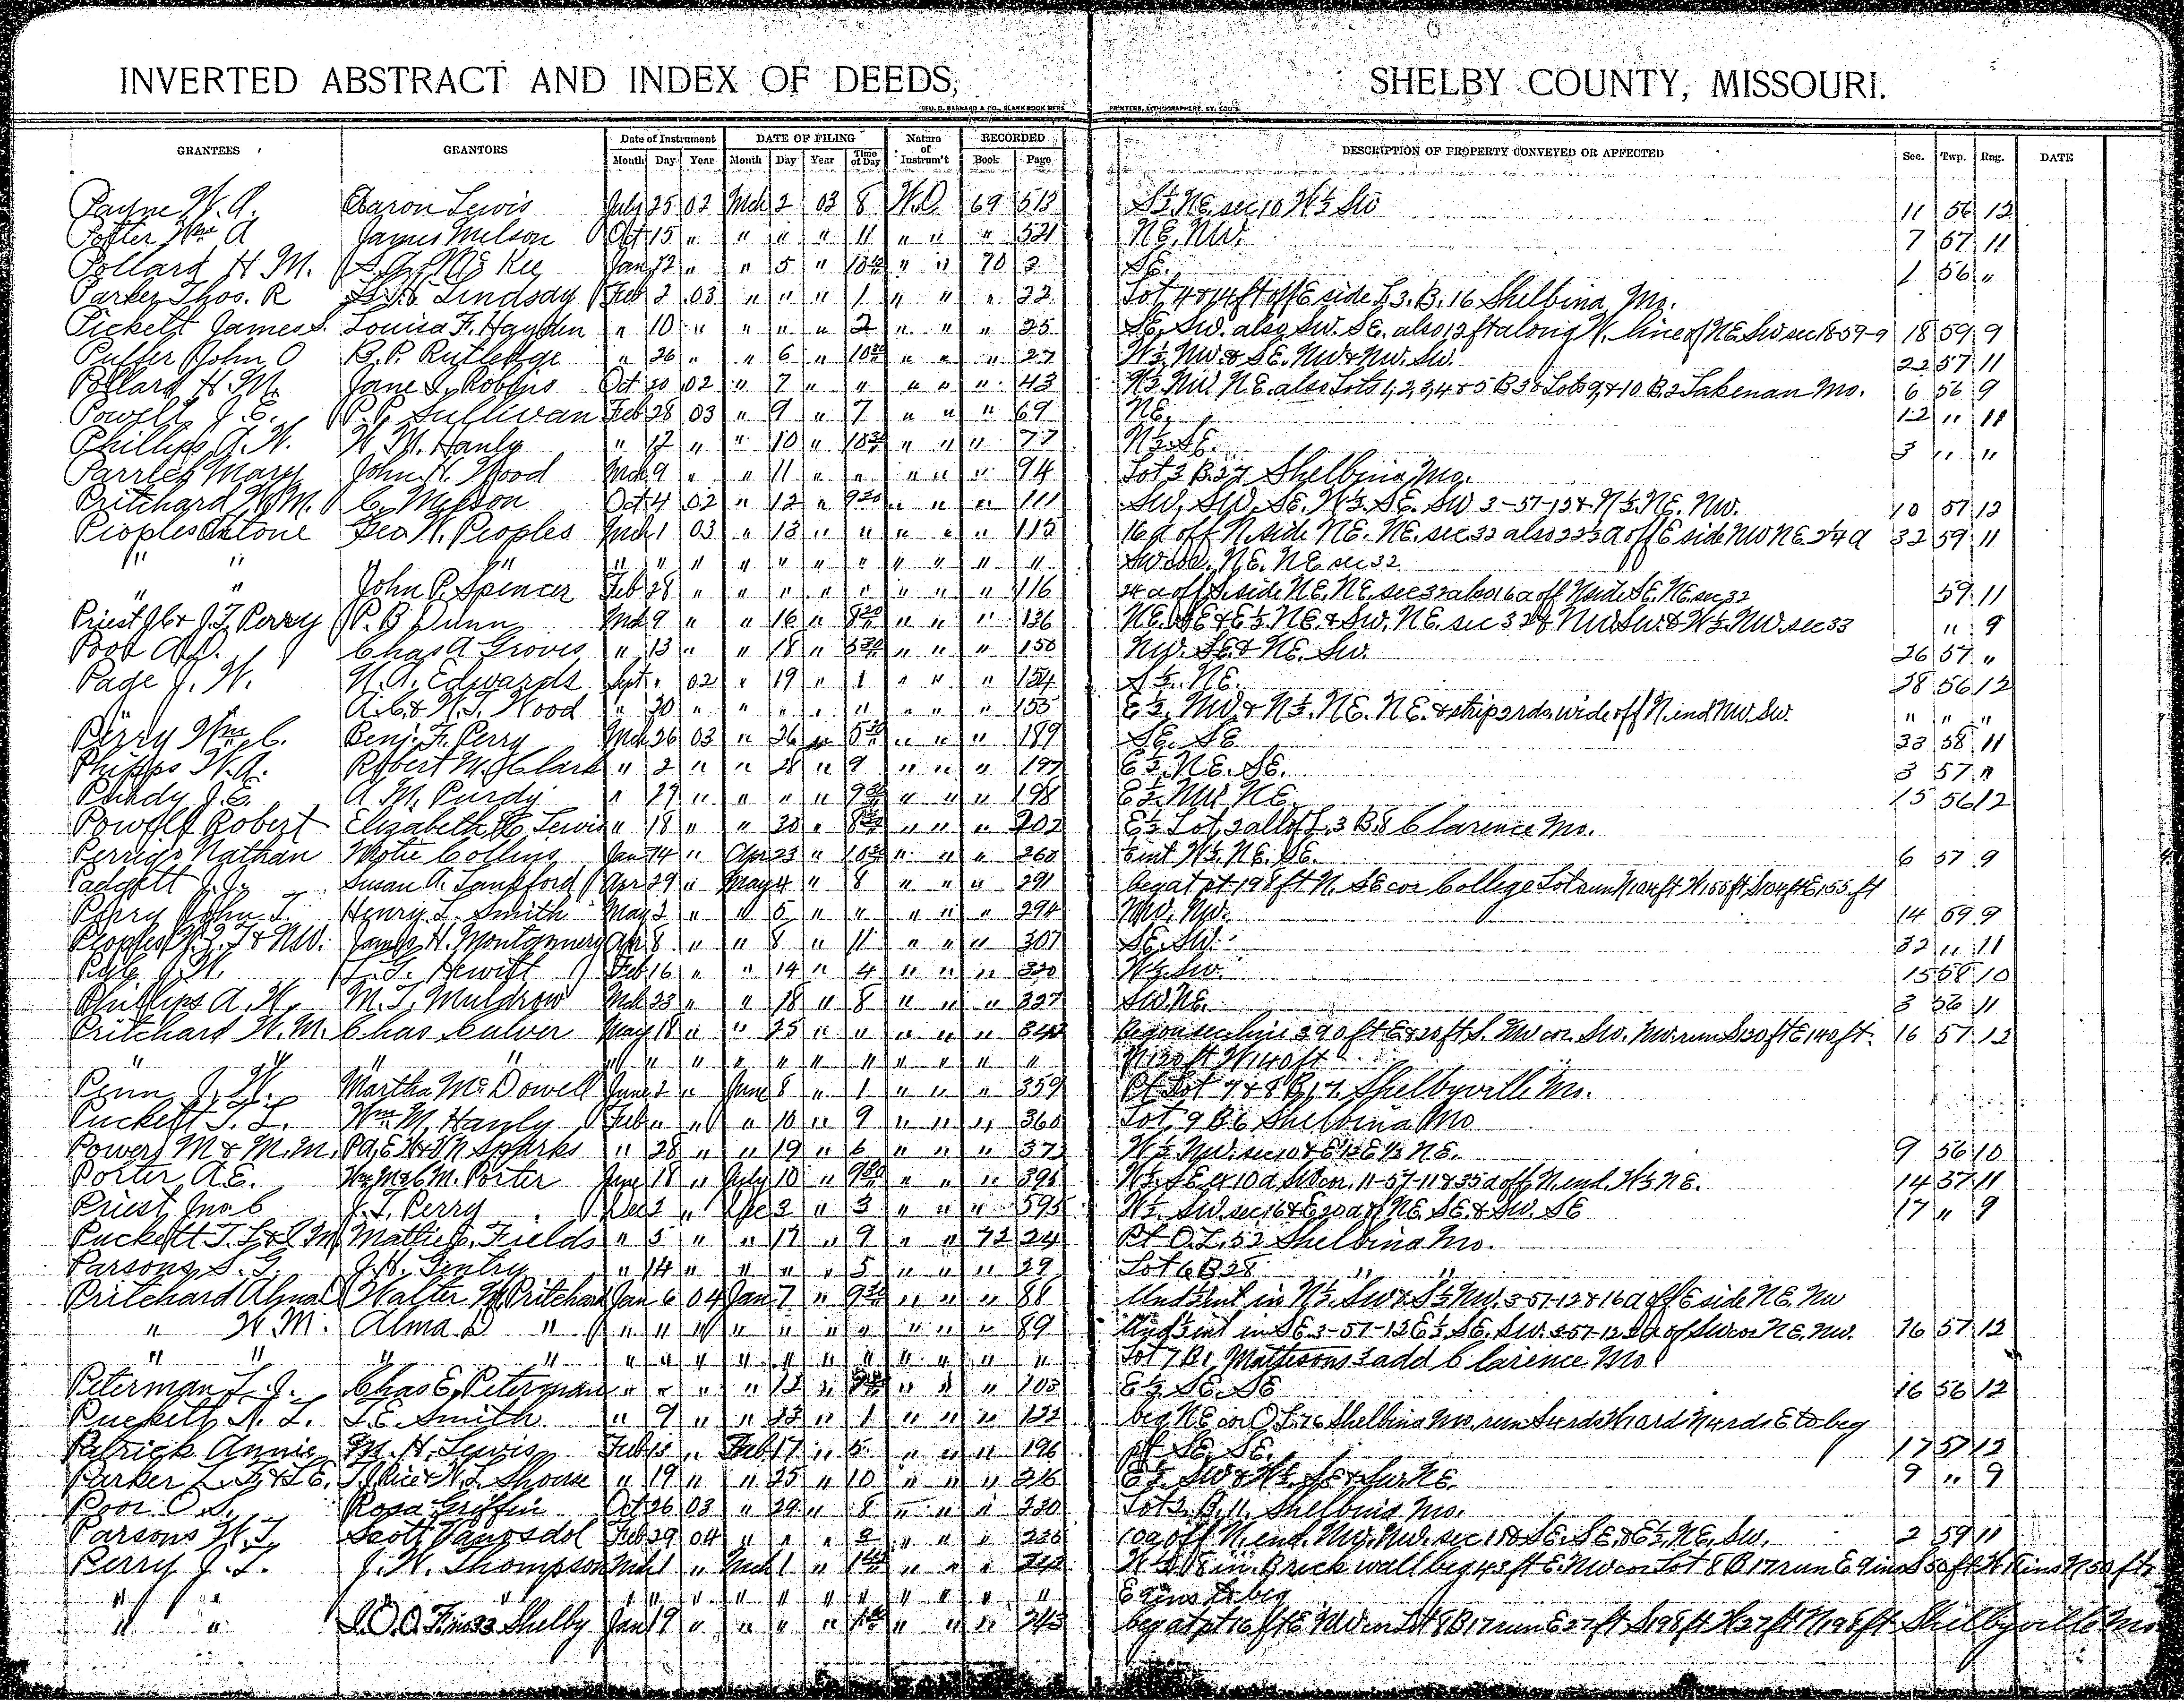 INVERTED ABSTRACT AND INDEX OF DEEDS, SHELBY COUNTY, MISSOURI.
GEO. D. BARNARD & CO., BLANK BOOK MFRS. PRINTERS, LITHOGRAPHERS, ST. LOUIS.
GRANTEES GRANTORS Date of Instrument DATE OF FILING Nature of Instrum't RECORDED DESCRIPTION OF PROPERTY CONVEYED OR AFFECTED Sec. Twp. Rng. DATE
Month Day Year Month Day Year Time of Day Book Page
Payne W. A. Aaron Lewis July 25 02 Mch 2 03 8 W.D. 69 513 S½ NE. sec 10 W½ SW 11 56 12
Potter Wm A James Melson Oct 15 " " " " 11 " " " 521 NE. NW. 7 57 11
Pollard H M. Jan 12 " " 5 " " " 70 3 SE. 1 56 "
Parker Thos. R Lindsay Feb 2 03 " " " 1 " " " 22 Lot 4 & 14 ft off E side L 3. B. 16 Shelbina, Mo.
Pickett James S. Louisa F. Hayden " 10 " " " " 2 " " " 25 SE. SW. also SW. SE. also 12 ft along N. line of NE. SW sec 18-59-9 18 59 9
Puller John O B. P. Rutledge " 26 " " 6 " " " " 27 W½ NW. & SE. NW & NW. SW. 22 57 11
Pollard H. M. Jane S. Robbins Oct 20 02 " 7 " " " " " 43 N½ NW. NE. also Lots 1, 2, 3, 4 & 5 B 3 & Lots 9 & 10 B. 2 Lakenan Mo. 6 56 9
Powell J. E. P. P. Sullivan Feb 28 03 " 9 " 7 " " " 69 NE. 12 " 11
Phillips A. W. W. M. Hanly " 17 " " 10 " " " " 77 N½ SE. 3 " "
Parrles Mary John H. Wood Mch 9 " " 11 " " " " " 94 Lot 3 B. 27 Shelbina, Mo.
Pritchard W. M. C. Melson Oct 4 02 " 12 " 9 20 " " " 111 SW. SW. SE. W½ SE. SW 3-57-12 & N½ NE. NW. 10 57 12
Peoples Antone Geo. W. Peoples Mch 1 03 " 13 " " " " " 115 16 a off N. side NE. NE. sec 32 also 22½ a off E side NW NE. 2¼ a 32 59 11
" " " " " " " " " " " " " " SW cor. NE. NE sec 32
" " John P. Spencer Feb 28 " " " " " " " " 116 24 a off S. side NE. NE. sec 32 also 16 a off N side SE. NE. sec 32 59 11
Priest J C & J. T. Perry P. B Dunn Mch 9 " " 16 " " " " 136 NE. SE & E½ NE. & SW. NE. sec 32 & NW. SW. & W½ NW. sec 33 " 9
Poor Chas A Groves " 13 " " 18 " " " " 150 NW. SE & NE. SW. 26 57 "
Page J. W. N. A. Edwards Sept " 02 " 19 " 1 " " " 154 S½ NE. 28 56 12
A. C. & W. T. Wood " 30 " " " " " " " " 155 E½ NW & N½ NE. NE. & strip 2 rds. wide off N. end NW. SW. " " "
Perry Wm C. Benj. F. Perry Mch 26 03 " 26 " " " " 189 SE. SE 33 58 11
Phipps W. A. Robert M. Clark " 2 " " 28 " 9 " " " 197 E½ NE. SE. 3 57 "
Purdy J. E. A. M. Purdy " 27 " " " " " " " 198 E½ NW NE. 15 56 12
Powell Robert Elizabeth Lewis " 18 " " 30 " " " " 202 E½ Lot 2 all of L. 3 B. 8 Clarence Mo.
Perrigo Nathan Motie Collins Jan 14 " Apr 23 " " " " 260 W½ NE. SE. 6 57 9
Padgett J. J. Susan A. Lankford Apr 29 " May 4 " 8 " " " 291 beg at pt 198 ft N. SE cor College Lot
Perry John T. Henry L. Smith May 2 " " 5 " " " " " 294 NW. NW. 14 59 9
Peoples & N.W. James H. Montgomery Apr 8 " " 8 " 11 " " " 307 SE. SW. 32 " 11
Pyle J. W. Hewitt Feb 16 " " 14 " 4 " " " 320 W½ SW. 15 58 10
Phillips A. W. M. T. Muldrow Mch 23 " " 18 " 8 " " " 327 SW. NE. 3 56 11
Pritchard W. M. Chas. Culver May 18 " " 25 " " " " " beg on sec line 390 ft E & 20 ft S. NW cor. SW. NW. run S 130 ft E 140 ft. 16 57 12
" " " " " " " " " " " " " " N 130 ft W. 140 ft
Penn J. W. Martha McDowell June 2 " June 8 " 1 " " " 359 Pt Lot 7 & 8 B. 17. Shelbyville Mo.
Puckett T. L. Wm M. Hanly Feb " " " 10 " 9 " " " 360 Lot 9 B 6 Shelbina Mo
Powers M & M. M. Sparks " 28 " " 19 " 6 " " " 373 W½ NW. sec 10 & E½ NE. 9 56 10
Porter A. E. Porter June 18 " July 10 " " " " 395 W½ SE & 10 a. SW cor. 11-57-11 & 35 a off N. end W½ NE. 14 57 11
Priest Jno. C J. T. Perry Dec 2 " Dec 3 " 3 " " " 595 W½ SW. sec 16 & E 20 a of NE. SE. & SW. SE 17 " 9
Puckett T. L. & C M. Mattie C. Fields " 5 " " 17 " 9 " " 72 24 Pt O. L. 52 Shelbina Mo.
Parsons S. G. J. H. Gentry " 14 " " " " 5 " " " 29 Lot 6 B 28 " "
Pritchard Alma Walter W Pritchard Jan 6 04 Jan 7 " " " " 88 Und ½ int in N½ SW & S½ NW. 3-57-12 & 16 a off E side NE. NW
" W. M. Alma D " " " " " " " " " " " 89 Und ½ int in SE 3-57-12 E½ SE. SW. 3-57-12 of SW cor NE. NW. 16 57 12
" " " " " " " " " " " " " " " Lot 7 B 1, Mathesons 3 add Clarence Mo.
Peterman L. J. Chas E. Peterman " " " " 12 " " " " 103 E½ SE. SE 16 56 12
Puckett N. L. T. E. Smith " 9 " " 23 " 1 " " " 122 beg NE cor O L. 76 Shelbina Mo, run E to beg
Patrick Annie M. H. Lewis Feb 13 " Feb 17 " 5 " " " 196 pt SE. SE. 17 57 12
Parker Shouse " 19 " " 25 " 10 " " " 216 E½ SW & W½ SE & SW NE. 9 " 9
Poor O. S. Rosa Griffin Oct 26 03 " 29 " 8 " " " 220 Lot 2 B. 11, Shelbina Mo.
Parsons W. T. Scott Vanosdol Feb 29 04 " " " 2 " " " 10 a off N. end. NW. NW. sec 1 & SE. SE. & E½ NE. SW. 2 59 11
Perry J. T. J. W. Thompson Mch 1 " Mch 1 " " " " 242 18 in. Brick wall beg 43 ft E. NW cor Lot 8 B 17 run E 9 ins S 50 ft W 9 ins N 50 ft
" " " " " " " " " " " " " " " E 9 ins to beg
" " I. O. O. F. no 33 Shelby Jan 19 " " " " " " " 243 beg at pt 16 ft E NW cor Lot 8 B 17 run E 27 ft S 198 ft W 27 ft N 198 ft Shelbyville Mo.